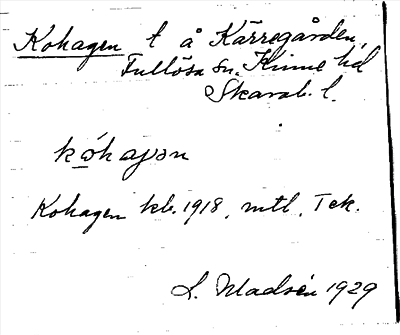 Kohagen t å Kärregården,
Fullösa sn. Kinne hd
Skarab. l.
kóhaɡən
Kohagen kb. 1918, mtl, Tek.
L. Madsén 1929